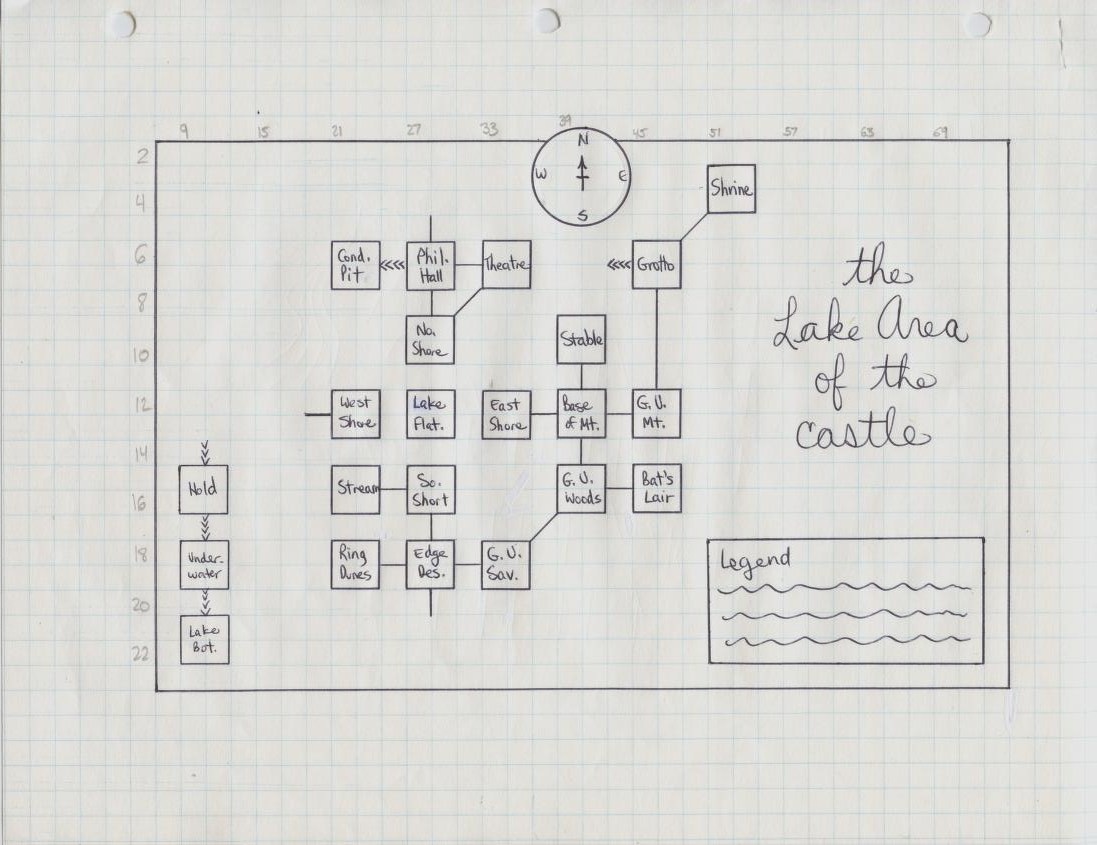 9 15 21 27 33 39 45 51 57 63 69
N
W E
S
2
4
6
8
10
12
14
16
18
20
22
Shrine
Cond.
Pit
Phil.
Hall
Theatre
Grotto
the
Lake Area
of the
castle
No.
Shore
Stable
West
Shore
Lake
Flat.
East
Shore
Base
of Mt.
G.U.
Mt.
Hold
Stream
So.
Short
G.U.
Woods
Bat's
Lair
Under-
water
Ring
Dunes
Edge
Des.
G.U.
Sav.
Legend
Lake
Bot.